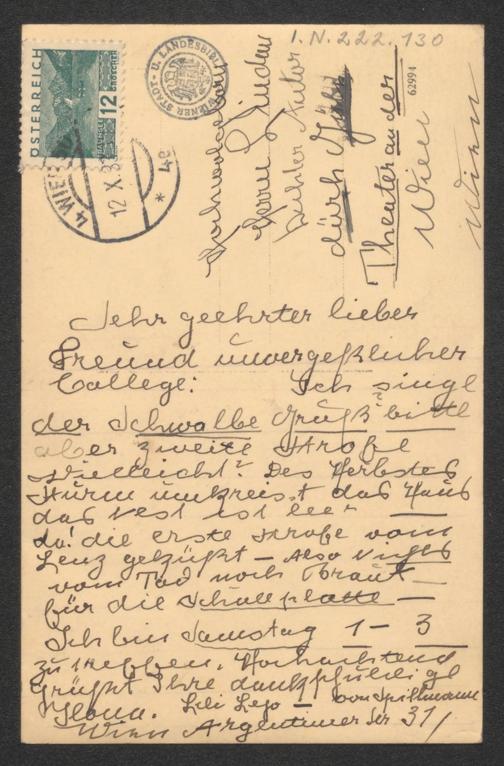 I.N. 222.130
ÖSTERREICH
12
GROSCHEN
WIENER STADT- U. LANDESBIBL
4 WIEN
12 X 3
* 4e
62994
Hochwohlgeboren
Herrn
Dichter Autor
dürch
Theater an der
Wien
Wien
Sehr geehrter lieber
Freund ünvergeßlicher
College: Ich singe
der Schwalbe Grüß bitte
aber zweite Strofe
vielleicht? Des Herbstes
Stürm umkreist das Haus
das Nest ist leer
da! die erste Strofe vom
Lenz geküßt – Also Nichts
vom Tod noch Braut –
für die Schallplatte –
Ich bin Samstag 1 – 3
zu treffen. Hochachtend
Grüßt Ihre dankschüldige
Ilona. – von Spillmann
Wien Argentinier Str 31/